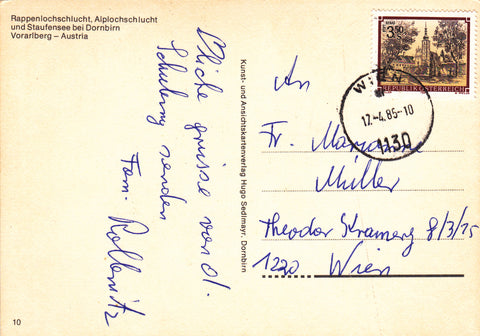 Rappenlochschlucht, Alplochschlucht
und Staufensee bei Dornbirn
Vorarlberg – Austria
grüsse von d.
Schulung senden
Fam.
10
Kunst- und Ansichtskartenverlag Hugo Sedlmayr, Dornbirn
3.50
REPUBLIK ÖSTERREICH
WIEN
17.-4.85-10
1130
An
Fr. Marianne
Müller
Theodor Kramerg 8/3/15
1220 Wien